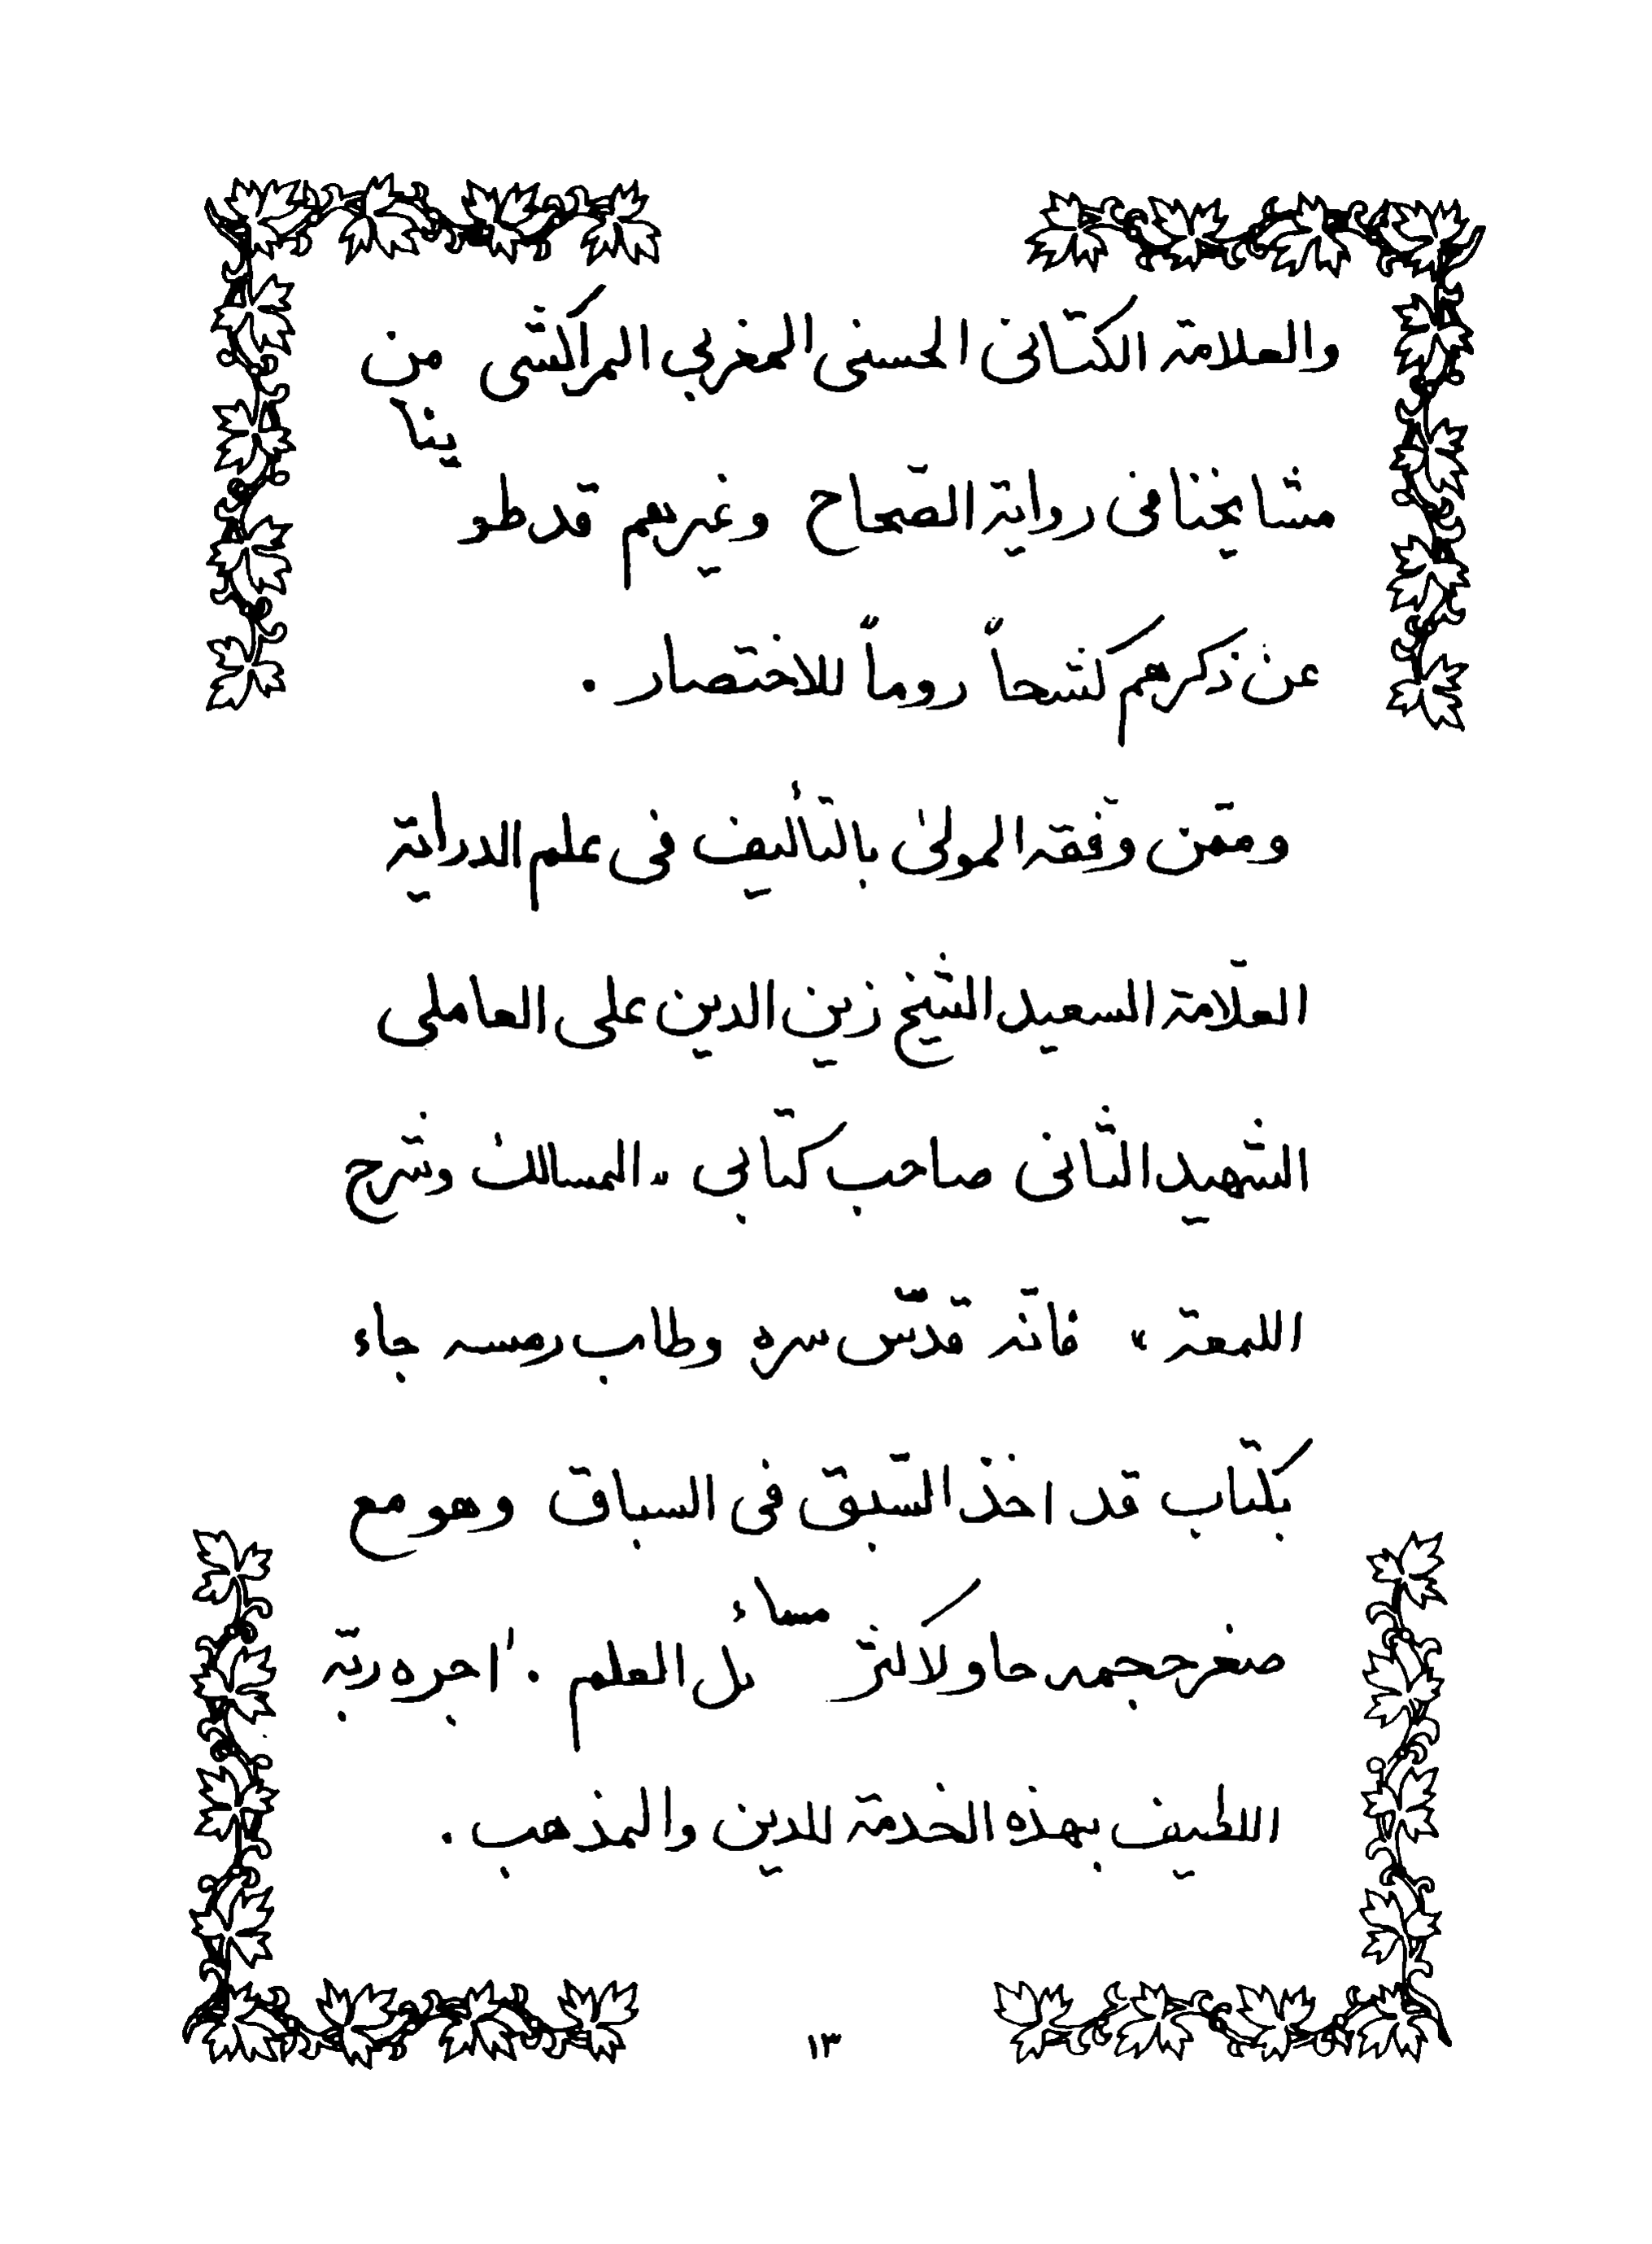 والعلامة الكتانى الحسنى المغربي المراكشى من
مشايخنا فى رواية الصّحاح وغيرهم قد طوينا
عن ذكرهم كشحاً روماً للاختصار .
وممّن وفّقه المولىٰ بالتّأليف فى علم الدراية
العلّامة السعيد الشيخ زين الدين على العاملى
الشهيد الثانى صاحب كتابي « المسالك وشرح
اللمعة » فانّه قدّس سره وطاب رمسه جاء
بكتاب قد اخذ السّبق فى السباق وهو مع
صغر حجمه حاو لاكثر مسائل العلم . اجره ربّه
اللطيف بهذه الخدمة للدين والمذهب .
١٣